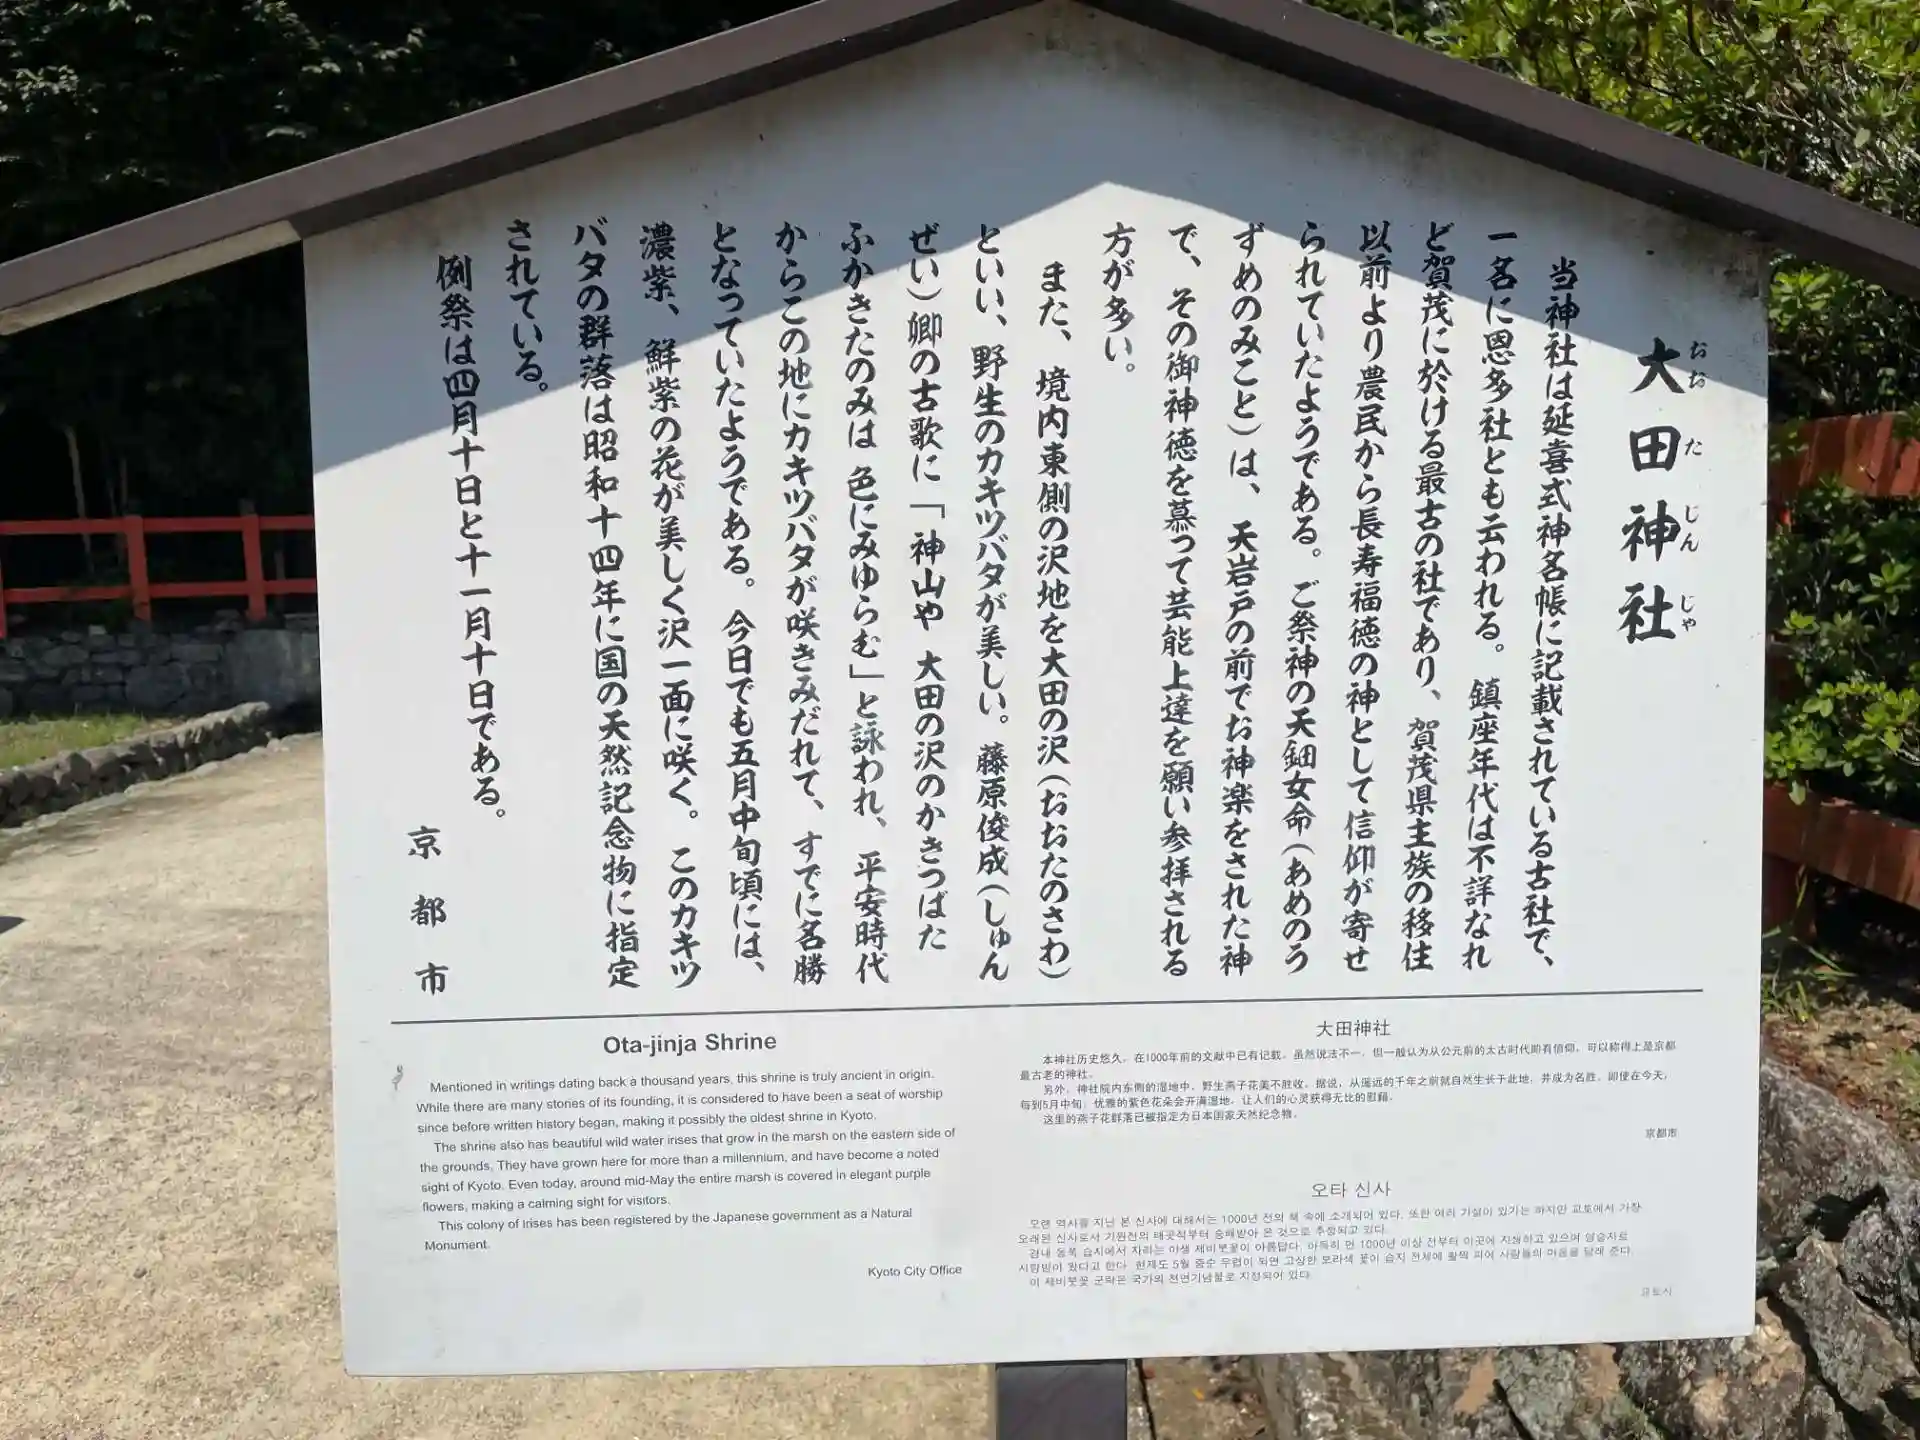 大田神社
おお た じん じや
当神社は延喜式神名帳に記載されている古社で、
一名に恩多社とも云われる。鎮座年代は不詳なれ
ど賀茂に於ける最古の社であり、賀茂県主族の移住
以前より農民から長寿福徳の神として信仰が寄せ
られていたようである。ご祭神の天鈿女命(あめのう
ずめのみこと)は、天岩戸の前でお神楽をされた神
で、その御神徳を慕って芸能上達を願い参拝される
方が多い。
また、境内東側の沢地を大田の沢(おおたのさわ)
といい、野生のカキツバタが美しい。藤原俊成(しゅん
ぜい)卿の古歌に「神山や 大田の沢のかきつばた
ふかきたのみは 色にみゆらむ」と詠われ、平安時代
からこの地にカキツバタが咲きみだれて、すでに名勝
となっていたようである。今日でも五月中旬頃には、
濃紫、鮮紫の花が美しく沢一面に咲く。このカキツ
バタの群落は昭和十四年に国の天然記念物に指定
されている。
例祭は四月十日と十一月十日である。
京都市
Ota-jinja Shrine
Mentioned in writings dating back a thousand years, this shrine is truly ancient in origin.
While there are many stories of its founding, it is considered to have been a seat of worship
since before written history began, making it possibly the oldest shrine in Kyoto.
The shrine also has beautiful wild water irises that grow in the marsh on the eastern side of
the grounds. They have grown here for more than a millennium, and have become a noted
sight of Kyoto. Even today, around mid-May the entire marsh is covered in elegant purple
flowers, making a calming sight for visitors.
This colony of irises has been registered by the Japanese government as a Natural
Monument.
Kyoto City Office
大田神社
本神社历史悠久。在1000年前的文献中已有记载。虽然说法不一,但一般认为从公元前的太古时代即有信仰,可以称得上是京都
最古老的神社。
另外,神社院内东侧的湿地中,野生燕子花美不胜收。据说,从遥远的千年之前就自然生长于此地,并成为名胜。即使在今天,
每到5月中旬,优雅的紫色花朵会开满湿地,让人们的心灵获得无比的慰藉。
这里的燕子花群落已被指定为日本国家天然纪念物。
京都市
오타 신사
오랜 역사를 지닌 본 신사에 대해서는 1000년 전의 책 속에 소개되어 있다. 또한 여러 가설이 있기는 하지만 교토에서 가장
오래된 신사로서 기원전의 태곳적부터 숭배받아 온 것으로 추정되고 있다.
경내 동쪽 습지에서 자라는 야생 제비붓꽃이 아름답다. 아득히 먼 1000년 이상 전부터 이곳에 자생하고 있으며 명승지로
사랑받아 왔다고 한다. 현재도 5월 중순 무렵이 되면 고상한 보라색 꽃이 습지 전체에 활짝 피어 사람들의 마음을 달래 준다.
이 제비붓꽃 군락은 국가의 천연기념물로 지정되어 있다.
교토시